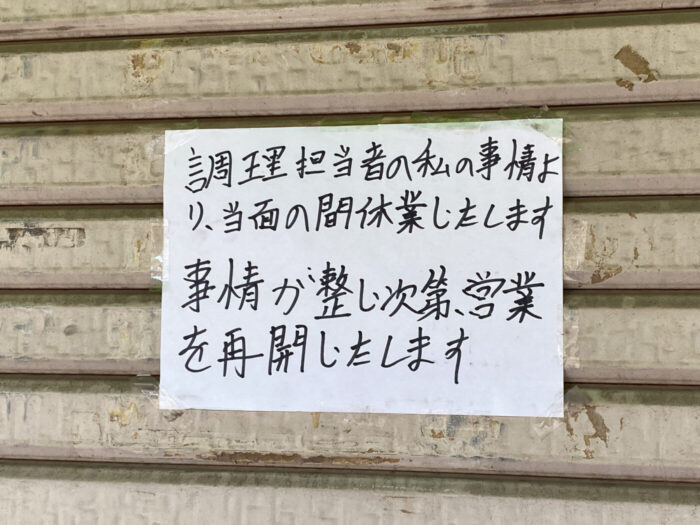 調理担当者の私の事情よ
り、当面の間休業いたします
事情が整い次第、営業
を再開いたします